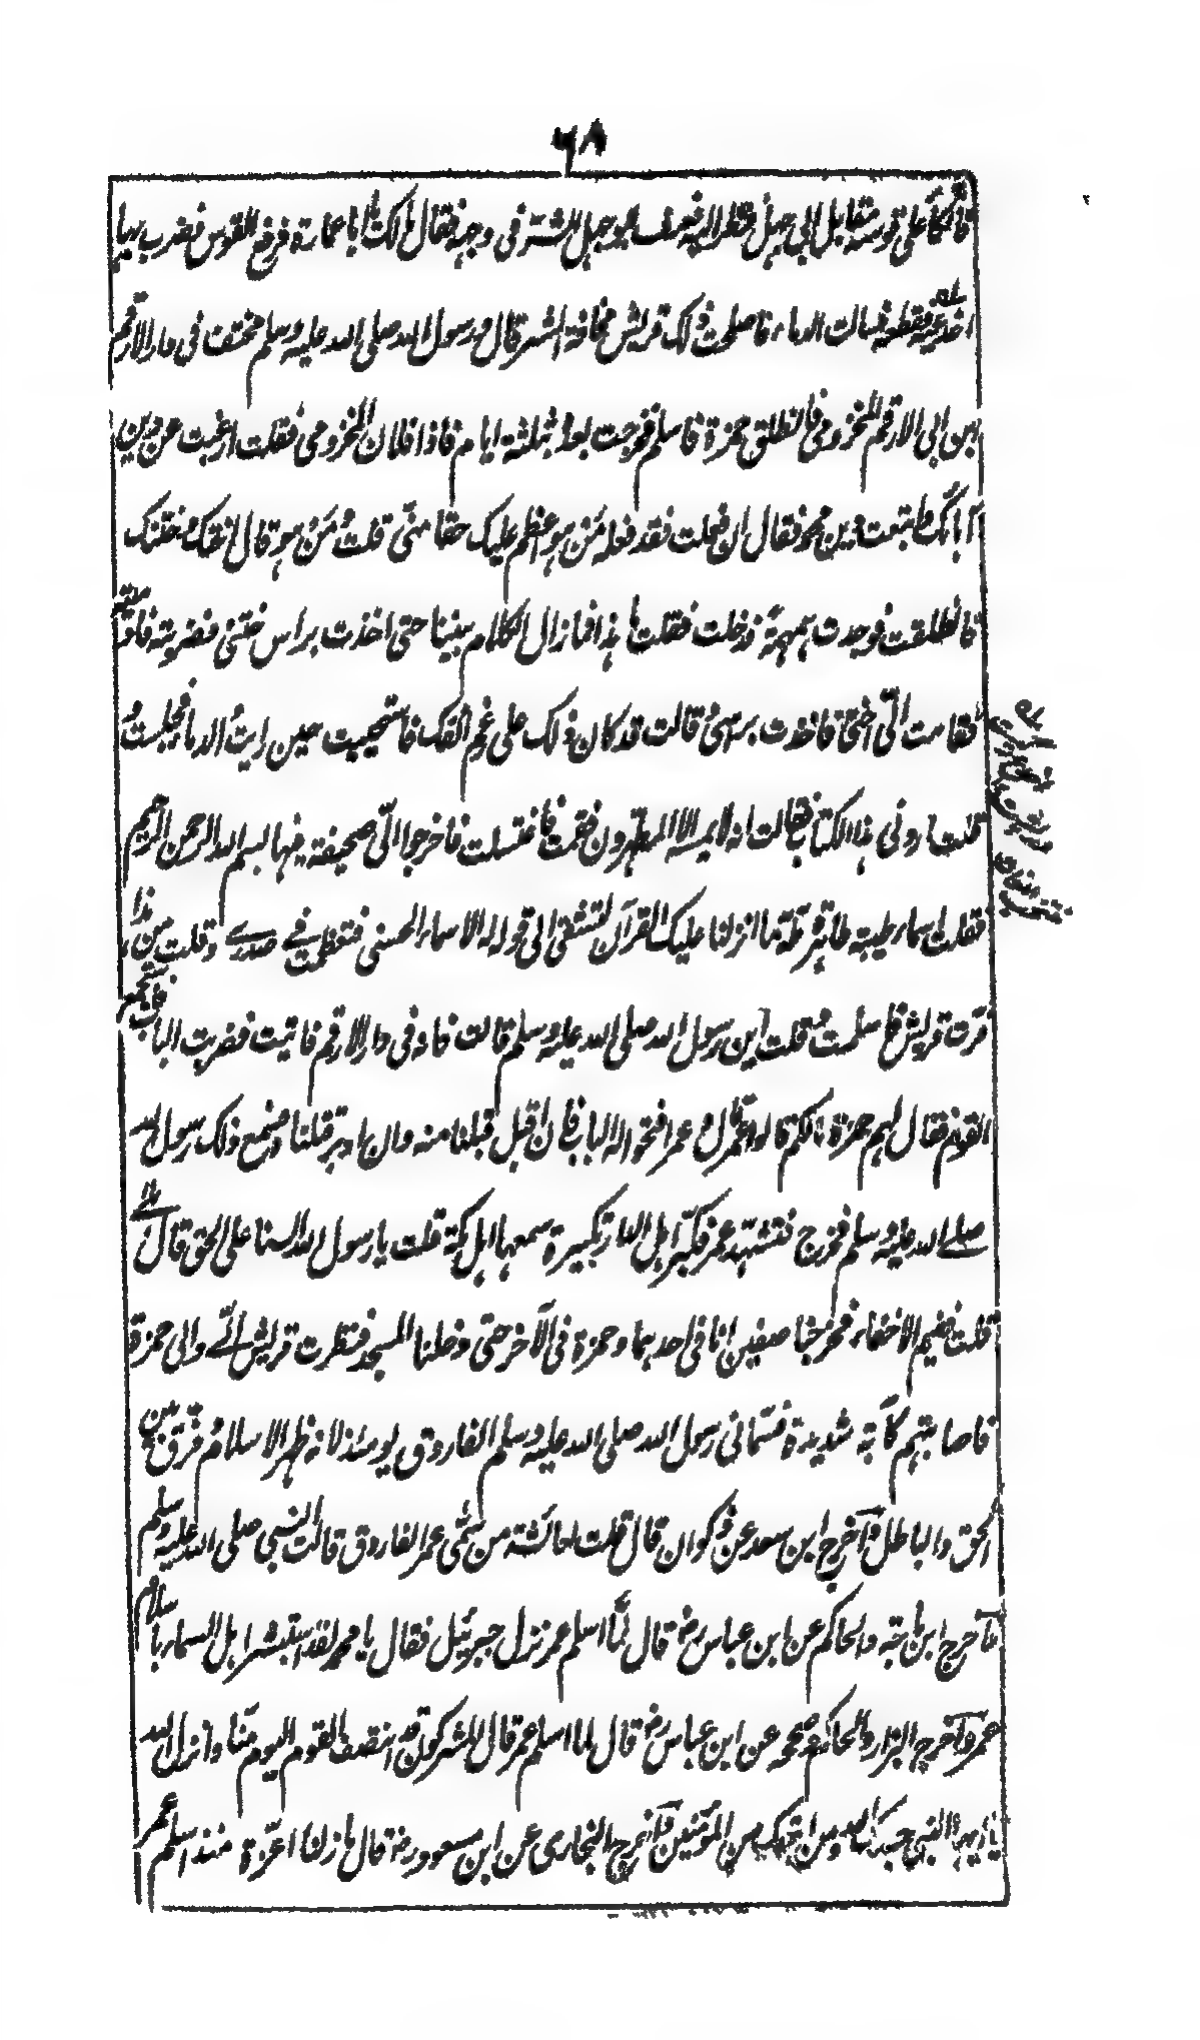 ٦٨
فاتكأ على قوسه مقابل ابي جهل فنظر اليه فعرف ابو جهل الشر في وجهه فقال مالك يا ابا عمارة فرفع القوس فضرب بها
اخدعيه فقطعه فسالت الدماء فاصلحت ذلك قريش مخافة الشر قال ورسول الله صلى الله عليه وسلم مختف في دار الارقم
بن ابي الارقم المخزومي فانطلق حمزة فاسلم فخرجت بعده بثلثة ايام فاذا فلان المخزومي فقلت ارغبت عن دين
آبائك واتبعت دين محمد فقال ان فعلت فقد فعله من هو اعظم عليك حقا مني قلت من هو قال اختك وختنك
فانطلقت فوجدت همهمة فدخلت فقلت ما هذا فما زال الكلام بيننا حتى اخذت براس ختني فضربته فادميته
فقامت الي اختي فاخذت براسي قالت قد كان ذلك على رغم انفك فاستحييت حين رايت الدماء فجلست و
قلت اروني هذا الكتاب فقالت انه لا يمسه الا المطهرون فقمت فاغتسلت فاخرجوا الي صحيفة فيها بسم الله الرحمن الرحيم
فقلت اسماء طيبة طاهرة طه ما انزلنا عليك القرآن لتشقى الى قوله له الاسماء الحسنى فتعظمت في صدري وقلت من هذا
فرت قريش فاسلمت وقلت اين رسول الله صلى الله عليه وسلم قالت فانه في دار الارقم فاتيت فضربت الباب فاستجمع
القوم فقال لهم حمزة مالكم قالوا عمر قال وعمر افتحوا له الباب فان اقبل قبلنا منه وان ادبر قتلناه فسمع ذلك رسول الله
صلى الله عليه وسلم فخرج فتشهد عمر فكبر اهل الدار تكبيرة سمعها اهل مكة قلت يا رسول الله السنا على الحق قال بلى
قلت ففيم الاخفاء فخرجنا صفين انا في احدهما وحمزة في الآخر حتى دخلنا المسجد فنظرت قريش الي والى حمزة
فاصابتهم كآبة شديدة فسماني رسول الله صلى الله عليه وسلم الفاروق يومئذ لانه ظهر الاسلام وفرق بين
الحق والباطل وآخرج ابن سعد عن ذكوان قال قلت لعائشة من سمى عمر الفاروق قالت النبي صلى الله عليه وسلم
وآخرج ابن ماجة والحاكم عن ابن عباس رض قال لما اسلم عمر نزل جبرئيل فقال يا محمد لقد استبشر اهل السماء باسلام
عمر وآخرج البزار والحاكم وصححه عن ابن عباس رض قال لما اسلم عمر قال المشركون قد انتصف القوم اليوم منا وانزل الله
يا ايها النبي حسبك الله ومن اتبعك من المؤمنين وآخرج البخاري عن ابن مسعود رض قال ما زلنا اعزة منذ اسلم عمر